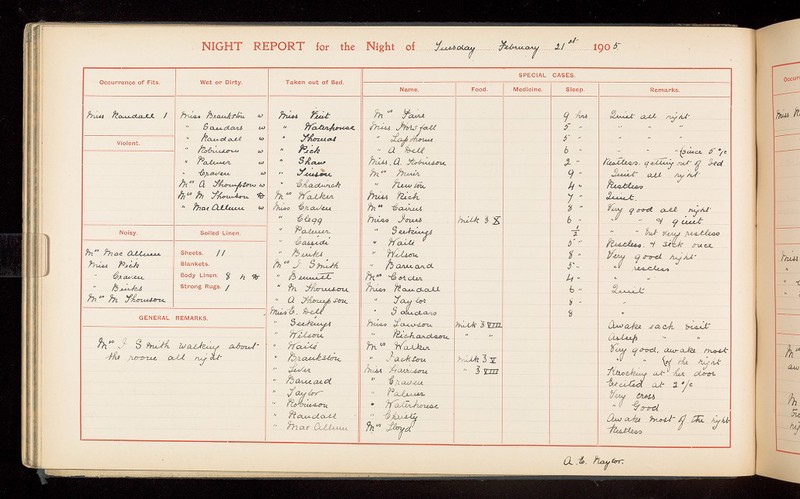 NIGHT REPORT for the Night of Tuesday February 21st 1905
Occurrence of Fits. Wet or Dirty. Taken out of Bed. SPECIAL CASES.
Name. Food. Medicine. Sleep. Remarks.
Miss Randall 1
Violent.
Noisy.
Mrs Mac Allum
Miss Rich
" Craven
" Binks
Mrs M Thomson
Miss Brankston w
" Sandars w
" Randall w
" Robinson w
" Palmer w
" Craven w
Mrs A Thompson w
Mrs M Thomson
" Mac Allum w
Soiled Linen.
Sheets. 11
Blankets.
Body Linen. 8
Strong Rugs. 1
GENERAL REMARKS.
Mrs J Smith walking about
the room all night
Miss Veit
" Waterhouse
" Thomas
" Rich
" Shaw
" Chadwick
Mrs Walker
Miss Craven
" Clegg
" Palmer
" Cassidi
" Binks
Mrs J Smith
" Bennett
" M Thomson
" A Thompson
Miss E. Bell
" Seekings
" Wilson
" Waite
" Brankston
" Barnard
" Taylor
" Robinson
" Randall
" Mac Allum
9 hrs Quiet all night
Miss Horsfall 5 " " " "
5 " " " "
" A Bell 6 " " " " (since 5 o/c
Miss A. Robinson 2 " Restless. getting out of bed
Mrs Muir 9 " Quiet all night
" Newton 4 " Restless
Miss Rich 7 " Quiet
Mrs Cairns 8 " Very good all night
Miss Jones Milk ℥ X 6 " " " & quiet
" Seekings ½ " " but very restless
" Waite 5 " Restless. & sick once
" Wilson 8 " Very good night
" Barnard 5 " " restless
Mrs Corder 4 "
Miss Randall 6 " Quiet
" Taylor 8 " "
" Sandars 8 "
Miss Lawson Milk ℥ VIII Awake each visit
" Richardson " " Asleep " "
Mrs Walker Very good, awake most
" Jackson Milk ℥ X " " (of the night
Miss Harrison " ℥ VIII Knocking at her door
" Craven Excited at 2 o/c
" Palmer Very cross
" Waterhouse " Good
" Chusty Awake most of the night
Mrs Lloyd Restless
Naylor.